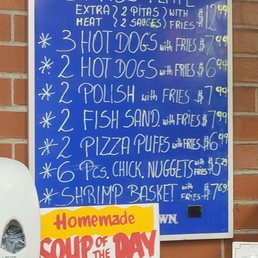 EXTRA) (2 PITAS) WITH $12.99
MEAT (2 SAUCES) FRIES
* 3 HOT DOGS with FRIES $7.99
* 2 HOT DOGS with FRIES $6.99
* 2 POLISH with FRIES $7.99
* 2 FISH SAND with FRIES $7.99
* 2 PIZZA PUFFS with FRIES $6.99
* 6 Pcs. CHICK. NUGGETS with FRIES $5.29
* SHRIMP BASKET with FRIES $7.69
Homemade
SOUP OF THE DAY